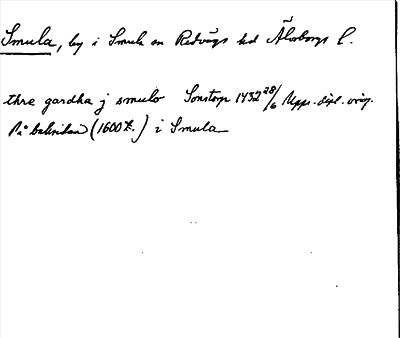 Smula, by i Smula sn Redvägs hd Älvsborgs l.
thre gardha j smulo Sonstorp 1432 28/6 Upps. dipl. orig.
På baksidan (1600 t.) i Smula